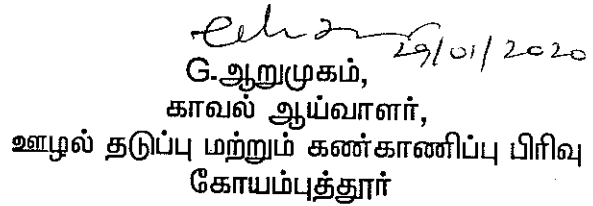 29/01/2020
G.ஆறுமுகம்,
காவல் ஆய்வாளர்,
ஊழல் தடுப்பு மற்றும் கண்காணிப்பு பிரிவு
கோயம்புத்தூர்